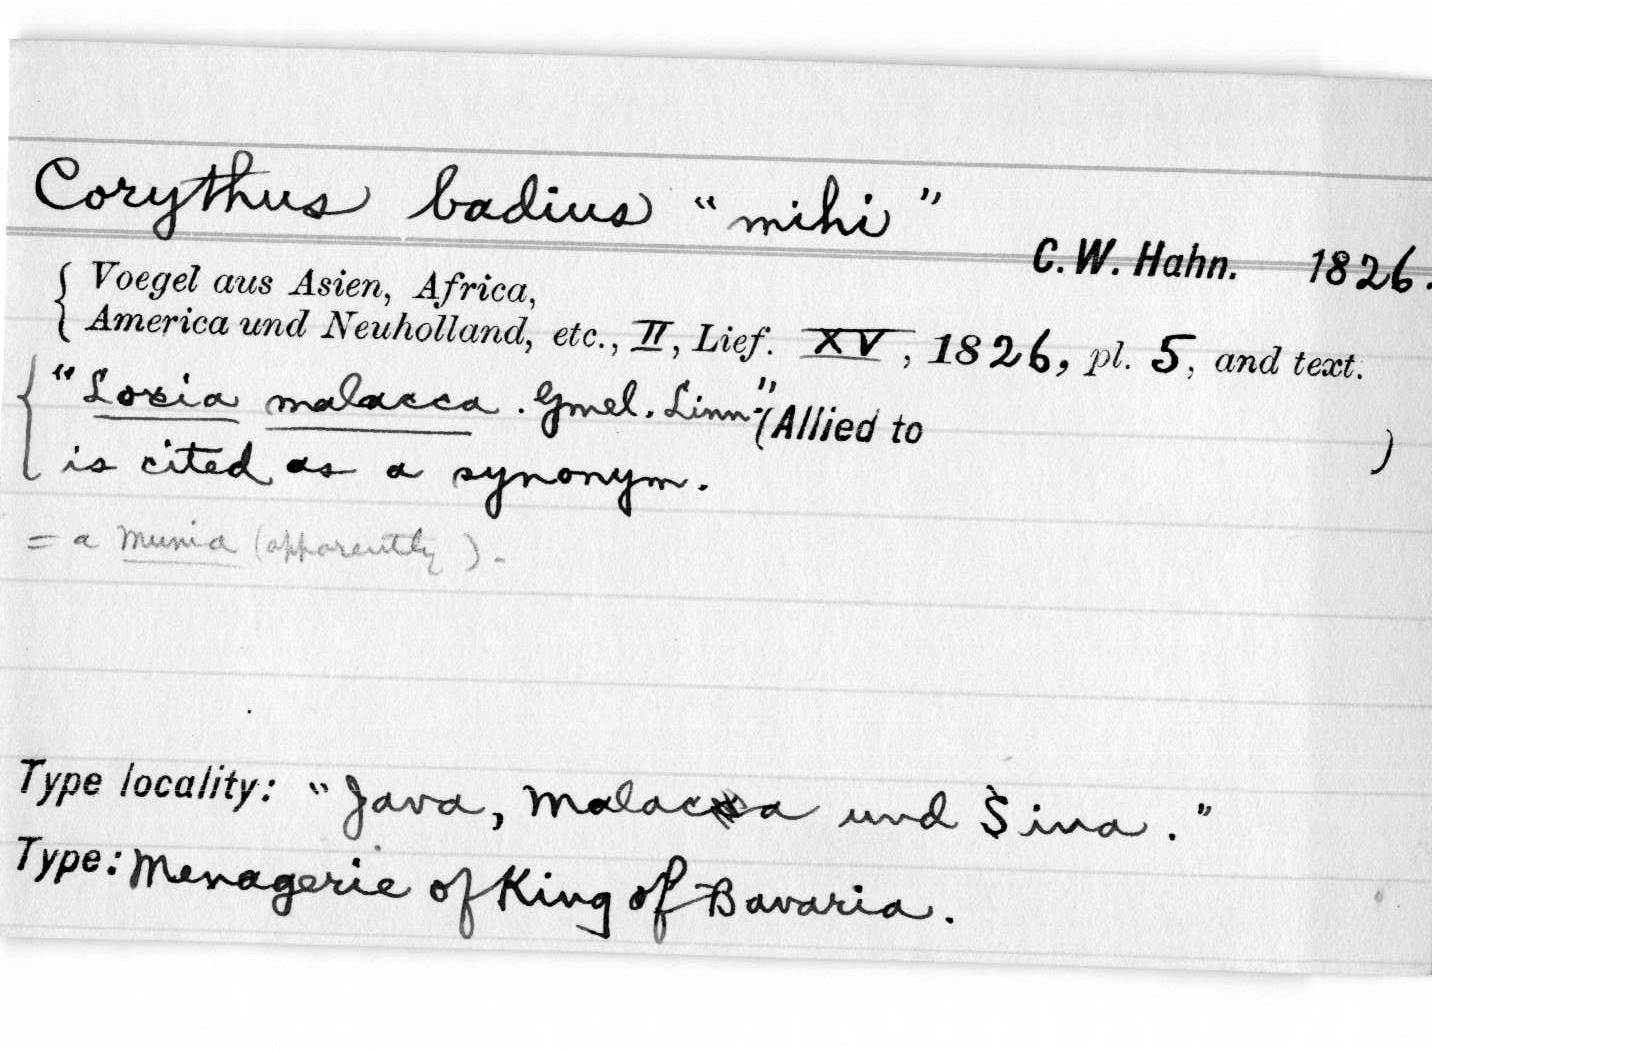 Corythus badius "mihi"
C. W. Hahn. 1826.
Voegel aus Asien, Africa,
America und Neuholland, etc., II, Lief. XV, 1826, pl. 5, and text.
"Loxia malacca. Gmel. Linn." (Allied to )
is cited as a synonym.
= a Munia (apparently).
Type locality: "Java, Malacca und Sina."
Type: Menagerie of King of Bavaria.